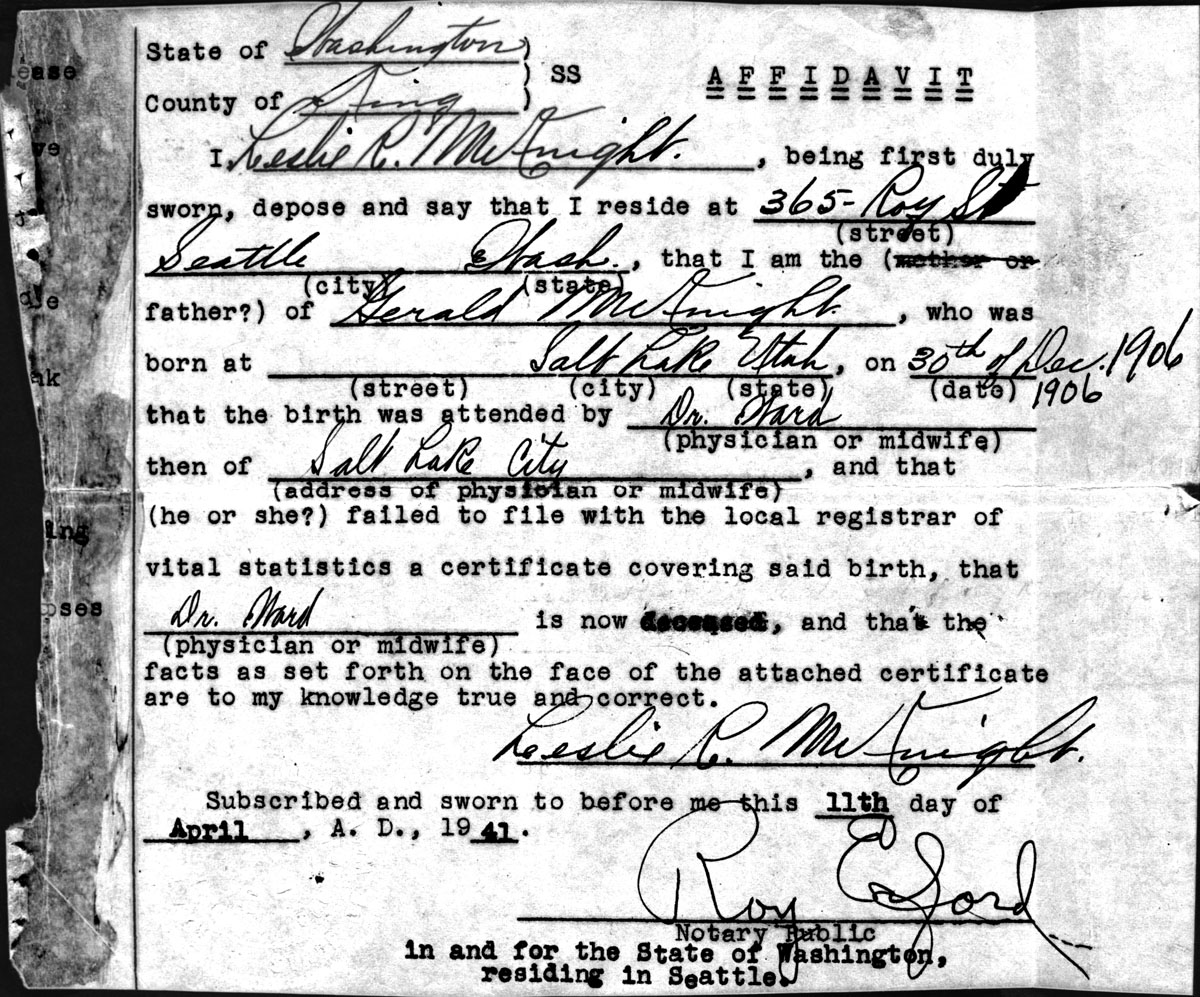 State of Washington )
SS AFFIDAVIT
County of King )
I, Leslie R. McKnight. , being first duly
sworn, depose and say that I reside at 365- Roy St
(street)
Seattle Wash. , that I am the (mother or
(city) (state)
father?) of Gerald McKnight. , who was
born at Salt Lake Utah, on 30th of Dec. 1906
(street) (city) (state) (date) 1906
that the birth was attended by Dr. Ward
(physician or midwife)
then of Salt Lake City , and that
(address of physician or midwife)
(he or she?) failed to file with the local registrar of
vital statistics a certificate covering said birth, that
Dr. Ward is now deceased, and that the
(physician or midwife)
facts as set forth on the face of the attached certificate
are to my knowledge true and correct.
Leslie R. McKnight.
Subscribed and sworn to before me this 11th day of
April , A. D., 19 41.
Notary Public
in and for the State of Washington,
residing in Seattle.